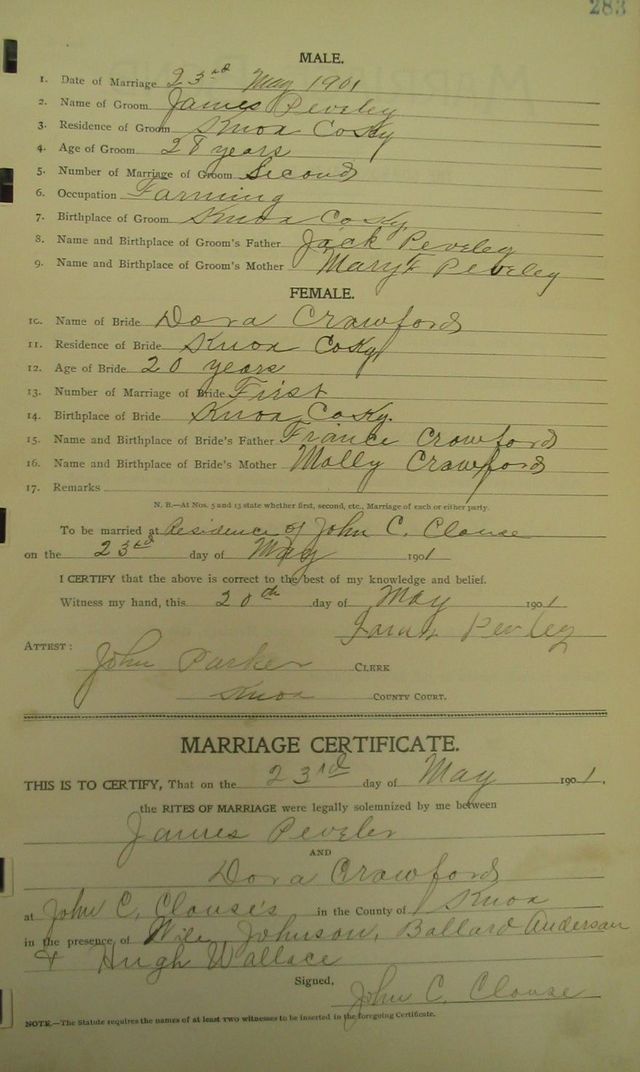 283
MALE.
1. Date of Marriage 23rd May 1901
2. Name of Groom James Peveley
3. Residence of Groom Knox Co Ky
4. Age of Groom 28 years
5. Number of Marriage of Groom Second
6. Occupation Farming
7. Birthplace of Groom Knox Co Ky
8. Name and Birthplace of Groom's Father Jack Peveley
9. Name and Birthplace of Groom's Mother Mary E Peveley
FEMALE.
10. Name of Bride Dora Crawford
11. Residence of Bride Knox Co Ky
12. Age of Bride 20 years
13. Number of Marriage of Bride First
14. Birthplace of Bride Knox Co Ky.
15. Name and Birthplace of Bride's Father Crawford
16. Name and Birthplace of Bride's Mother Molly Crawford
17. Remarks
N. B.—At Nos. 5 and 13 state whether first, second, etc., Marriage of each or either party.
To be married at Residence of John C. Clouse
on the 23rd day of May 1901
I CERTIFY that the above is correct to the best of my knowledge and belief.
Witness my hand, this 20th day of May 1901
ATTEST:
John Parker CLERK
Knox COUNTY COURT.
MARRIAGE CERTIFICATE.
THIS IS TO CERTIFY, That on the 23rd day of May 1901.
the RITES OF MARRIAGE were legally solemnized by me between
James Peveler
AND
Dora Crawford
at John C. Clouse's in the County of Knox
in the presence of Johnson, Ballard Anderson
& Hugh Wallace
Signed,
John C. Clouse
NOTE.—The Statute requires the names of at least two witnesses to be inserted in the foregoing Certificate.